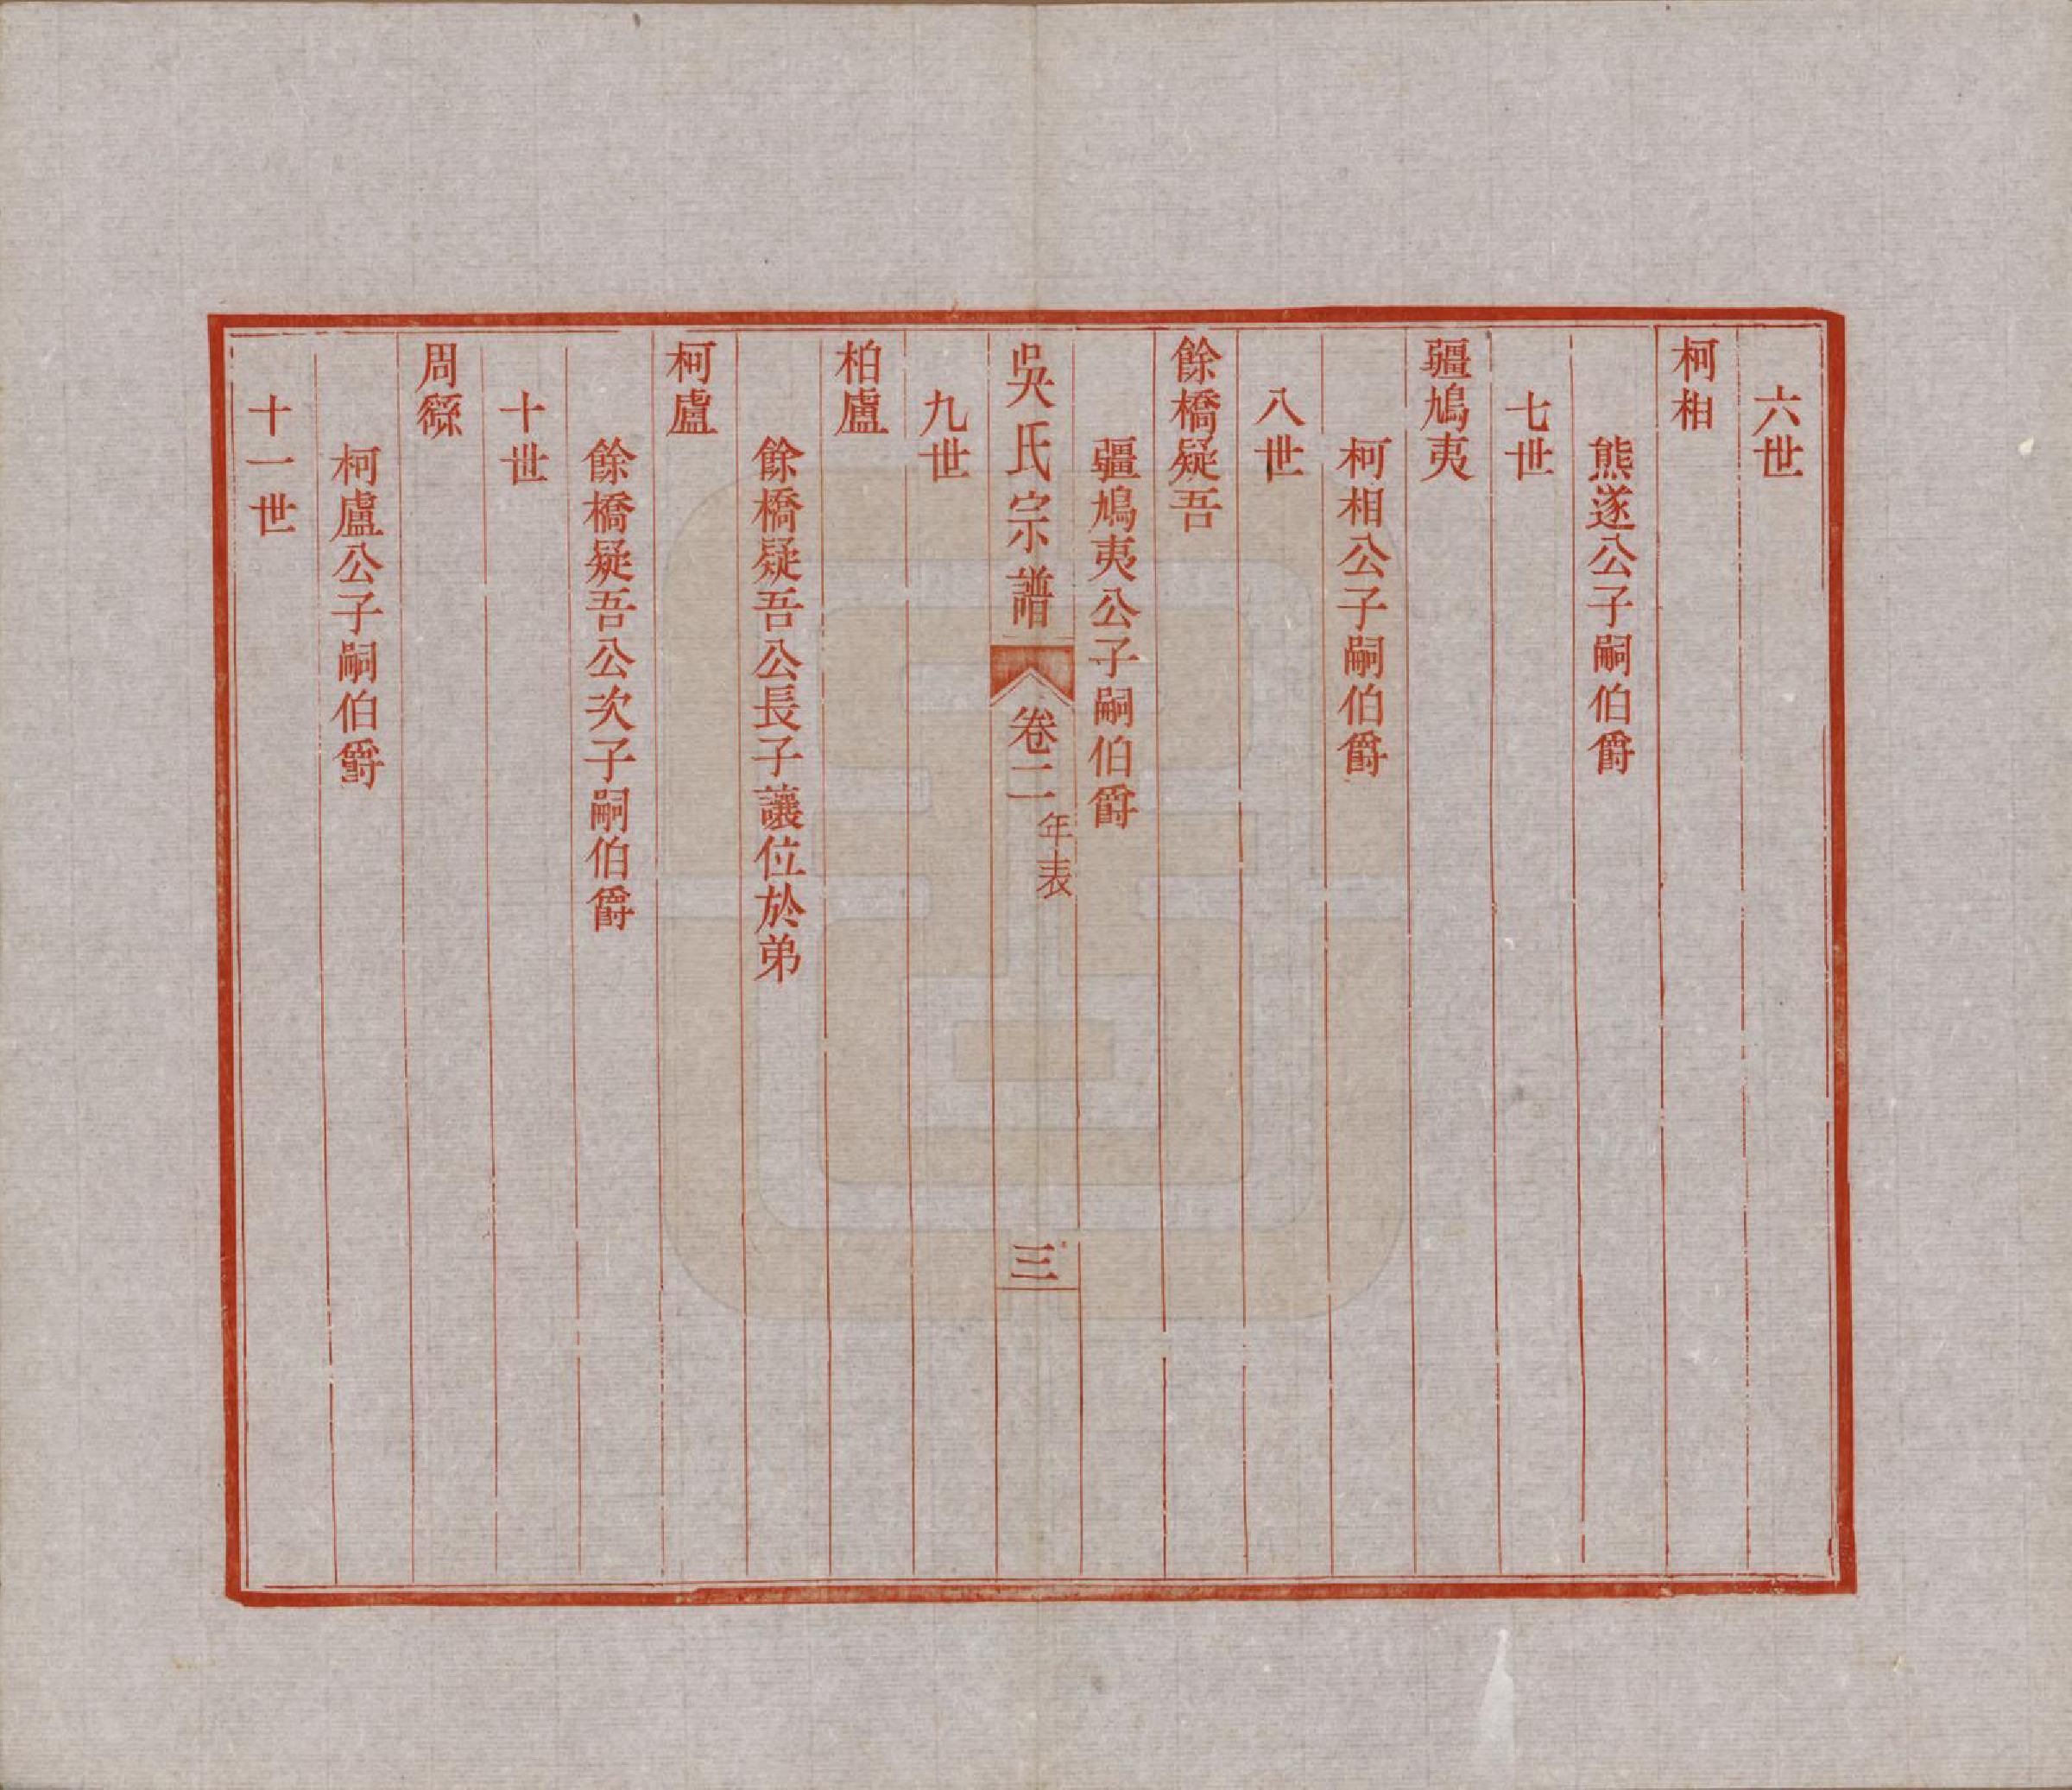 六世
柯相
熊遂公子嗣伯爵
七世
疆鳩夷
柯相公子嗣伯爵
八世
餘橋疑吾
疆鳩夷公子嗣伯爵
吳氏宗譜 卷二 年表 三
九世
柏盧
餘橋疑吾公長子讓位於弟
柯盧
餘橋疑吾公次子嗣伯爵
十世
周繇
柯盧公子嗣伯爵
十一世